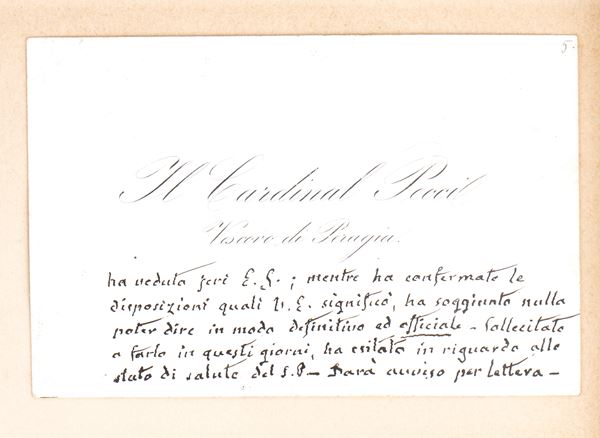 5.
Il Cardinal Pecci
Vescovo di Perugia.
ha veduto jeri E. S.; mentre ha confermate le
disposizioni quali V. E. significò, ha soggiunto nulla
poter dire in modo definitivo ed officiale - Sollecitato
a farlo in questi giorni, ha esitato in riguardo allo
stato di salute del S. P - Darà avviso per lettera -